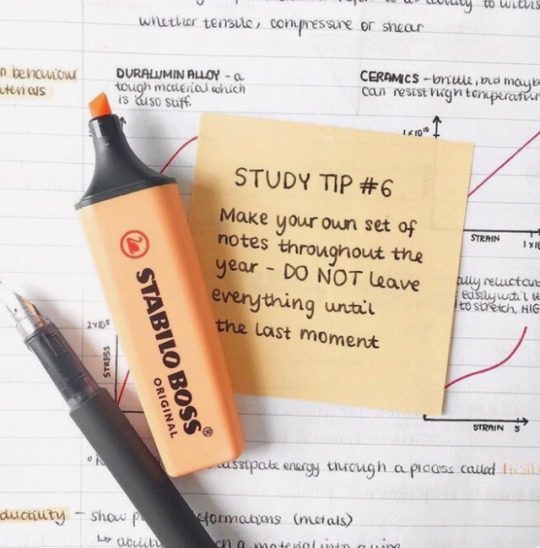 ability to withs
whether tensile, compressive or shear
behaviour
DURALUMIN ALLOY - a
tough material which
is also stiff
CERAMICS - brittle, but mayb
can resist high temperatur
1x10¹⁰
STUDY TIP #6
Make your own set of
notes throughout the
year - DO NOT leave
everything until
the last moment
STABILO BOSS®
ORIGINAL
STRAIN
1x10
ally reluctan
easily until
to stretch. HIG
2x10⁵
STRESS
STRAIN 5
dissipate energy through a process called
ductility - show
deformations (metals)
↳ ability
a material into a wire